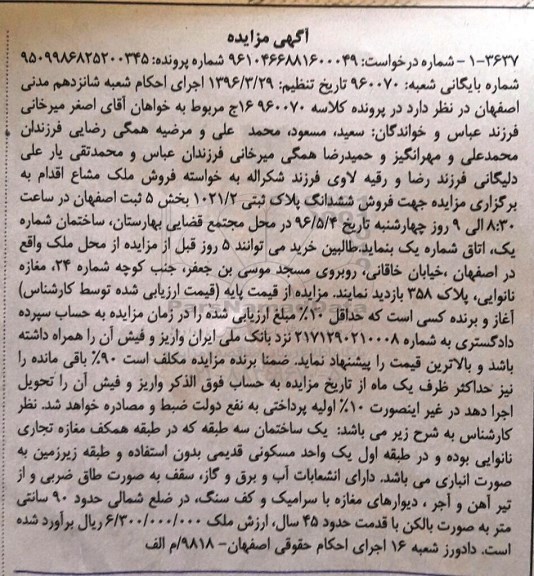 آگهی مزایده
۱-۳۶۳۷ - شماره درخواست: ۹۶۱۰۴۶۶۸۸۱۶۰۰۰۴۹ شماره پرونده: ۹۵۰۹۹۸۶۸۲۵۲۰۰۳۴۵
شماره بایگانی شعبه: ۹۶۰۰۷۰ تاریخ تنظیم: ۱۳۹۶/۳/۲۹ اجرای احکام شعبه شانزدهم مدنی
اصفهان در نظر دارد در پرونده کلاسه ۹۶۰۰۷۰ ج۱۶ مربوط به خواهان آقای اصغر میرخانی
فرزند عباس و خواندگان: سعید، مسعود، محمد علی و مرضیه همگی رضایی فرزندان
محمدعلی و مهرانگیز و حمیدرضا همگی میرخانی فرزندان عباس و محمدتقی یار علی
دلیگانی فرزند رضا و رقیه لاوی فرزند شکراله به خواسته فروش ملک مشاع اقدام به
برگزاری مزایده جهت فروش ششدانگ پلاک ثبتی ۱۰۲۱/۲ بخش ۵ ثبت اصفهان در ساعت
۸:۳۰ الی ۹ روز چهارشنبه تاریخ ۹۶/۵/۴ در محل مجتمع قضایی بهارستان، ساختمان شماره
یک، اتاق شماره یک بنماید.طالبین خرید می توانند ۵ روز قبل از مزایده از محل ملک واقع
در اصفهان ،خیابان خاقانی، روبروی مسجد موسی بن جعفر، جنب کوچه شماره ۲۴، مغازه
نانوایی، پلاک ۳۵۸ بازدید نمایند. مزایده از قیمت پایه (قیمت ارزیابی شده توسط کارشناس)
آغاز و برنده کسی است که حداقل ۱۰٪ مبلغ ارزیابی شده را در زمان مزایده به حساب سپرده
دادگستری به شماره ۲۱۷۱۲۹۰۲۱۰۰۰۸ نزد بانک ملی ایران واریز و فیش آن را همراه داشته
باشد و بالاترین قیمت را پیشنهاد نماید. ضمنا برنده مزایده مکلف است ۹۰٪ باقی مانده را
نیز حداکثر ظرف یک ماه از تاریخ مزایده به حساب فوق الذکر واریز و فیش آن را تحویل
اجرا دهد در غیر اینصورت ۱۰٪ اولیه پرداختی به نفع دولت ضبط و مصادره خواهد شد. نظر
کارشناس به شرح زیر می باشد: یک ساختمان سه طبقه که در طبقه همکف مغازه تجاری
نانوایی بوده و در طبقه اول یک واحد مسکونی قدیمی بدون استفاده و طبقه زیرزمین به
صورت انباری می باشد. دارای انشعابات آب و برق و گاز، سقف به صورت طاق ضربی و از
تیر آهن و آجر ، دیوارهای مغازه با سرامیک و کف سنگ، در ضلع شمالی حدود ۹۰ سانتی
متر به صورت بالکن با قدمت حدود ۴۵ سال، ارزش ملک ۶/۳۰۰/۰۰۰/۰۰۰ ریال برآورد شده
است. دادورز شعبه ۱۶ اجرای احکام حقوقی اصفهان- ۹۸۱۸/م الف